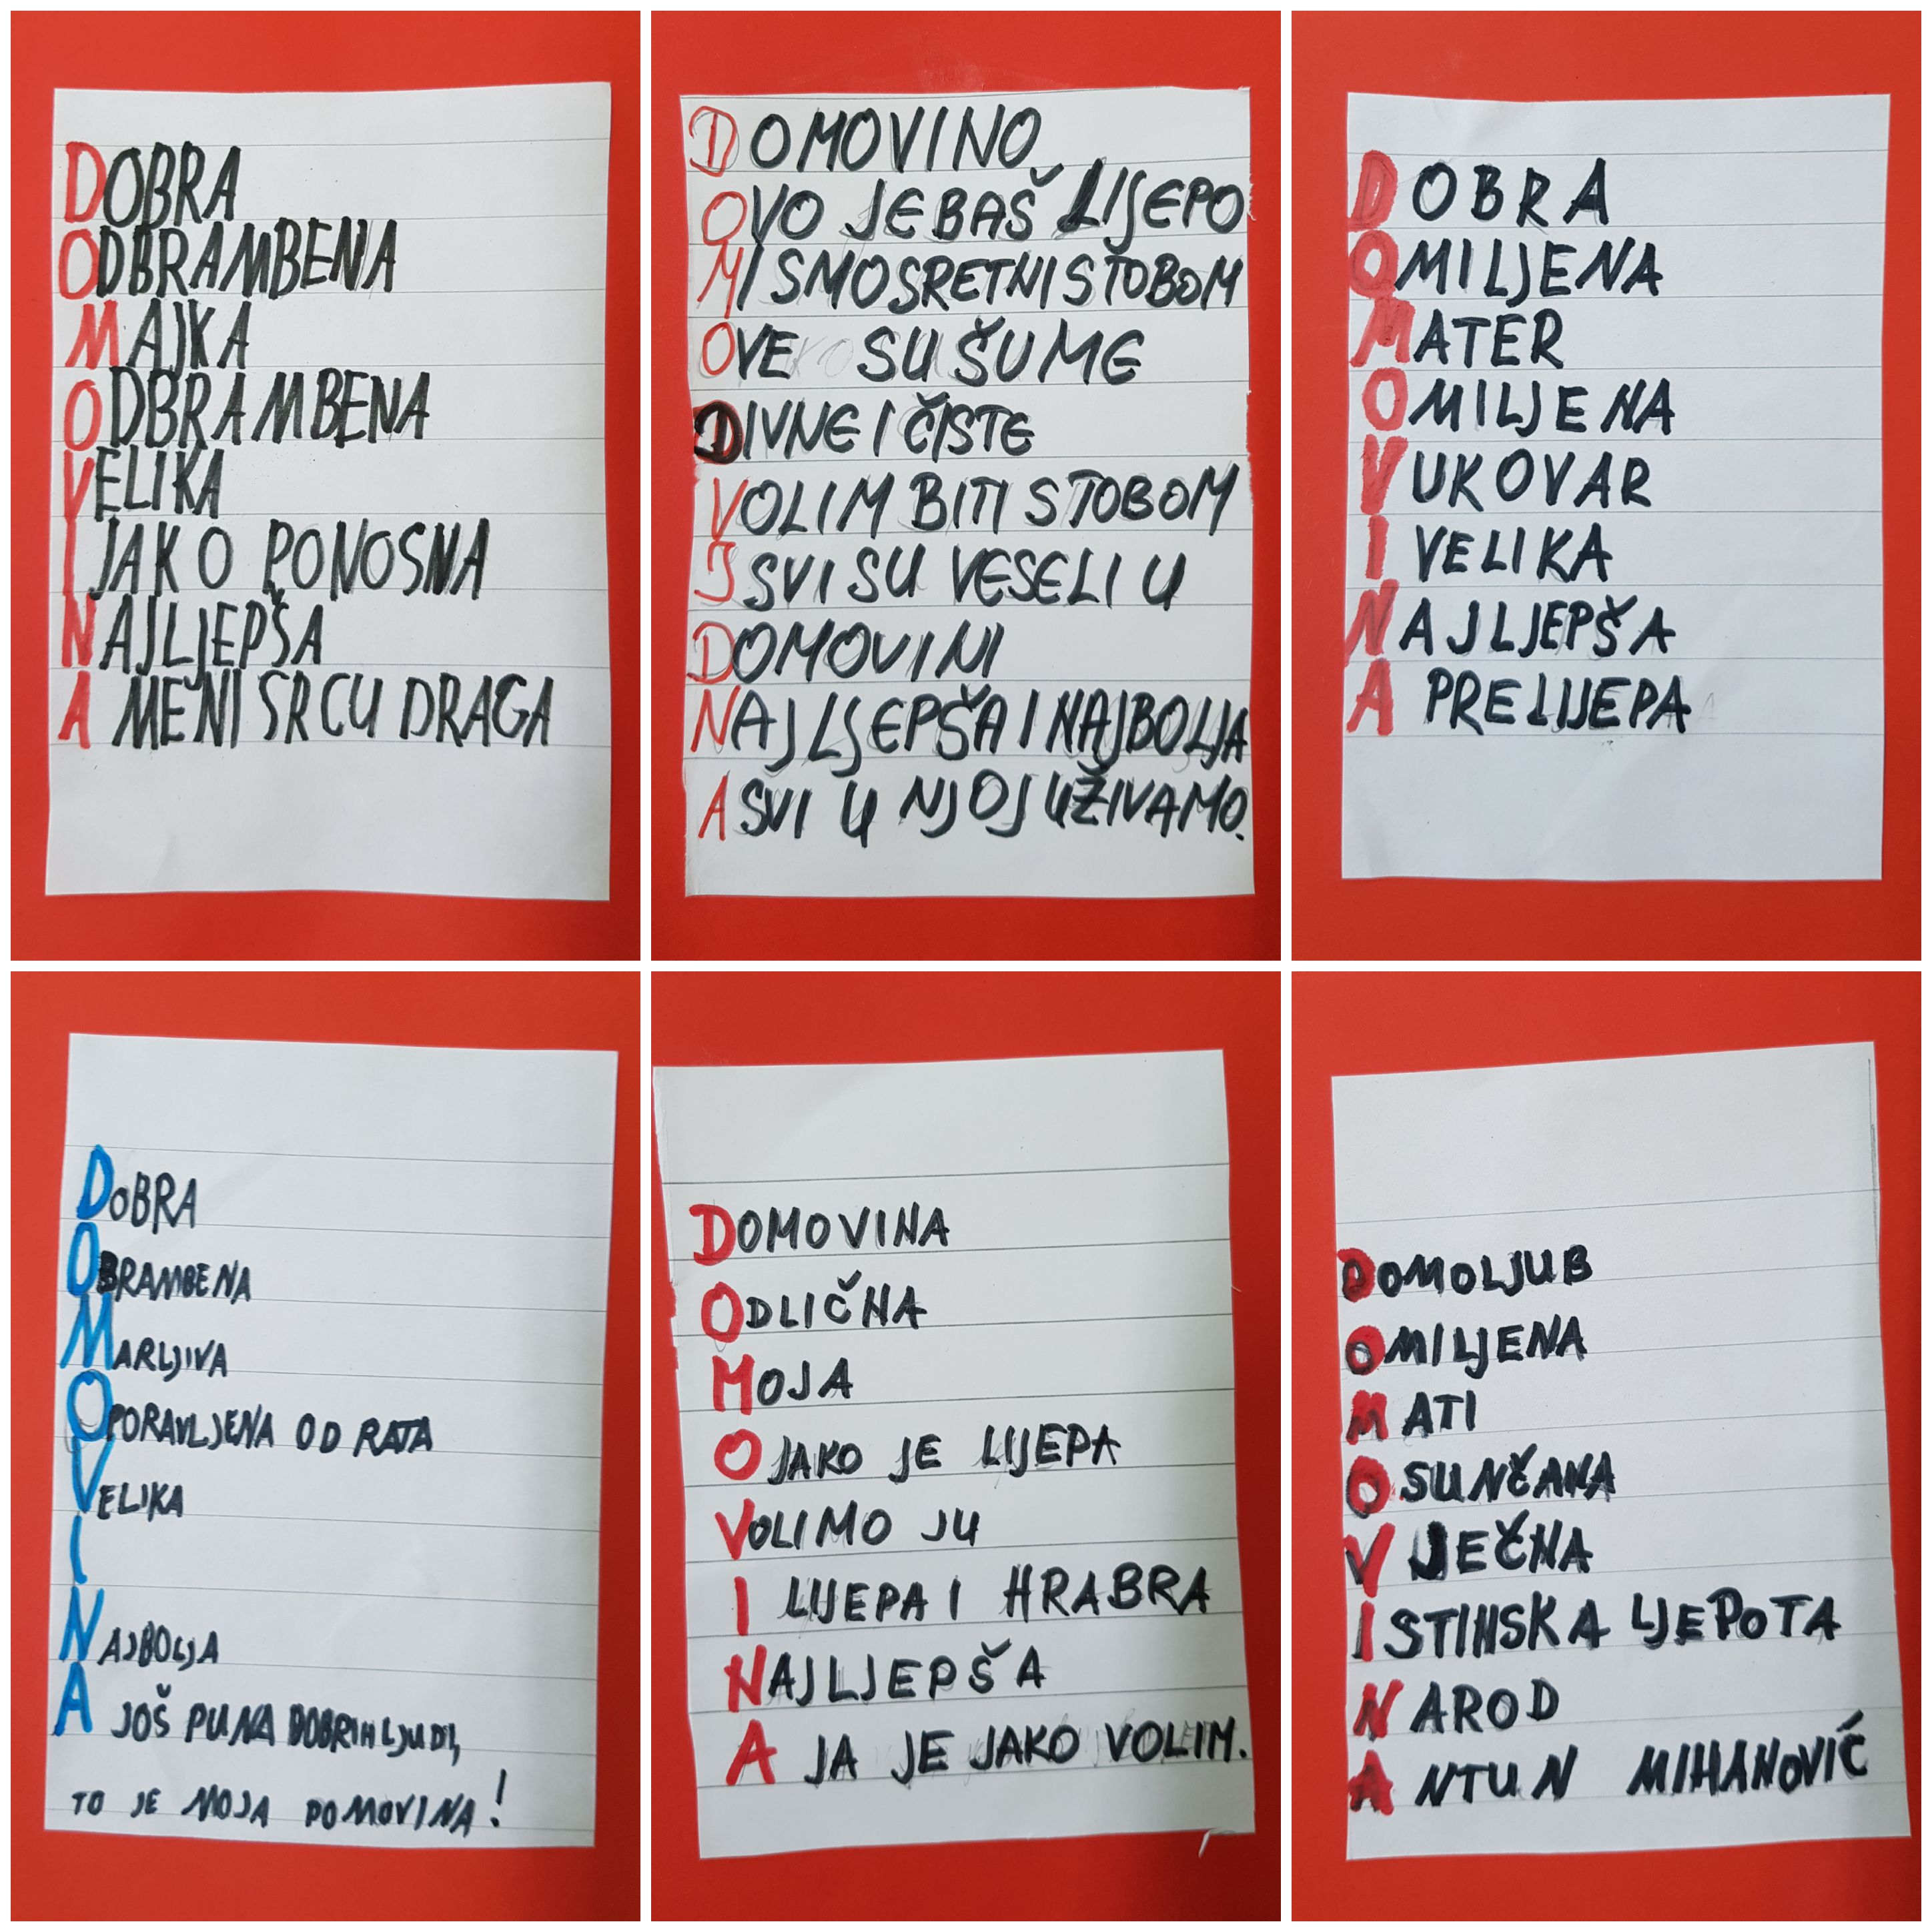 DOBRA
ODBRAMBENA
MAJKA
ODBRAMBENA
VELIKA
I JAKO PONOSNA
NAJLJEPŠA
A MENI SRCU DRAGA
DOMOVINO
OVO JE BAŠ LIJEPO
MI SMO SRETNI S TOBOM
OVE SU ŠUME
DIVNE I ČISTE
VOLIM BITI S TOBOM
I SVI SU VESELI U
DOMOVINI
NAJLJEPŠA I NAJBOLJA
A SVI U NJOJ UŽIVAMO.
DOBRA
OMILJENA
MATER
OMILJENA
VUKOVAR
I VELIKA
NAJLJEPŠA
A PRELIJEPA
DOBRA
OBRAMBENA
MARLJIVA
OPORAVLJENA OD RATA
VELIKA
I
NAJBOLJA
A JOŠ PUNA DOBRIH LJUDI,
TO JE MOJA DOMOVINA!
DOMOVINA
ODLIČNA
MOJA
O JAKO JE LIJEPA
VOLIMO JU
I LIJEPA I HRABRA
NAJLJEPŠA
A JA JE JAKO VOLIM.
DOMOLJUB
OMILJENA
MATI
OSUNČANA
VJEČNA
ISTINSKA LJEPOTA
NAROD
ANTUN MIHANOVIĆ